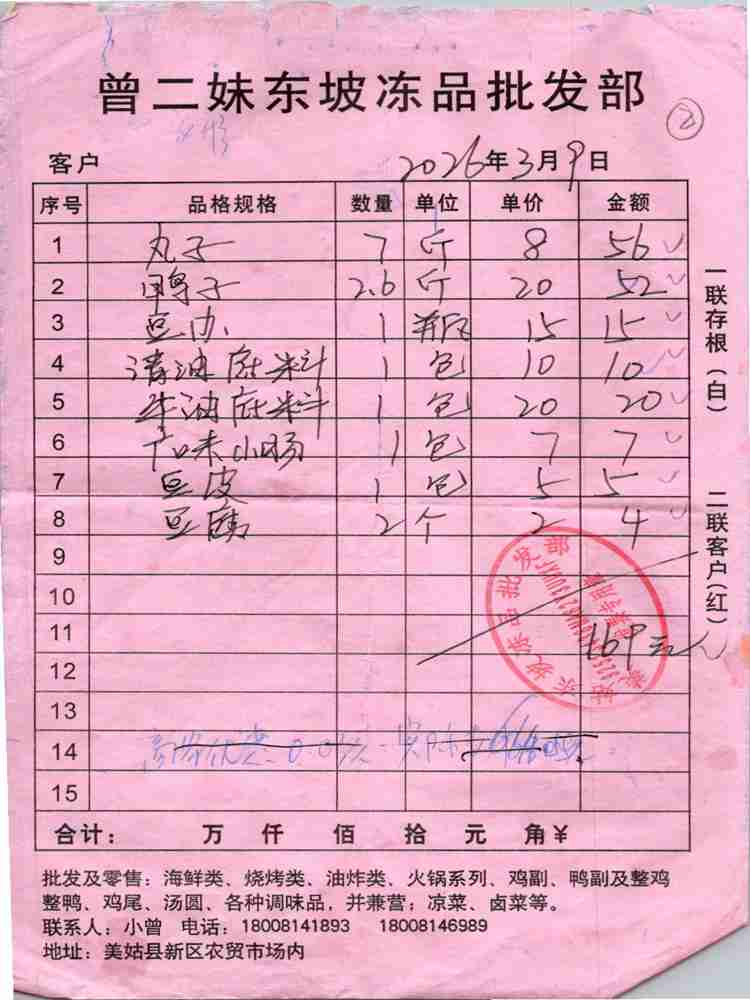 曾二妹东坡冻品批发部
②
客户 2026年3月9日
序号 品格规格 数量 单位 单价 金额
1 丸子 7 斤 8 56
2 子 2.6 斤 20 52
3 豆办 1 瓶 15 15
4 清油底料 1 包 10 10
5 牛油底料 1 包 20 20
6 广味小肠 1 包 7 7
7 豆皮 1 包 5 5
8 豆腐 2 个 2 4
9
10
11 169元
12
13
14
15
合计： 万 仟 佰 拾 元 角￥
批发及零售：海鲜类、烧烤类、油炸类、火锅系列、鸡副、鸭副及整鸡
整鸭、鸡尾、汤圆、各种调味品，并兼营：凉菜、卤菜等。
联系人：小曾 电话：18008141893 18008146989
地址：美姑县新区农贸市场内
一联存根（白）
二联客户（红）
东坡冻品批发部